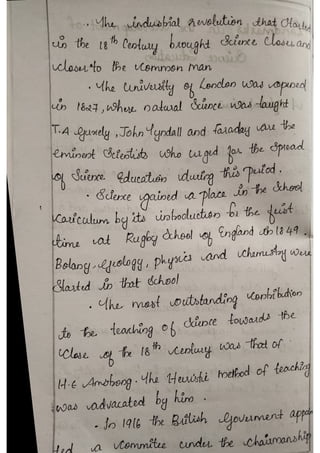 . The industrial revolution, that started
in the 18th Century brought Science Closer and
closer to the common man
. The University of London was opened
in 1827, where natural Science was taught
T.A Guxely, John Tyndall and Faraday are the
eminent Scientists who urged for the spread
of Science Education during this period.
. Science gained a place in the School
Cariculum by its introduction to the first
time at Rugby School of England in 1849.
Botany, Geology, physics and chemistry were
Started in that School
. The most outstanding Contribution
to the teaching of Science towards the
Close of the 18th century was that of
H.E Amstrong. The Heuristic method of teaching
was advacated by him.
. In 1916 the British Goverment appoin
ted a Commitee under the chairmanship